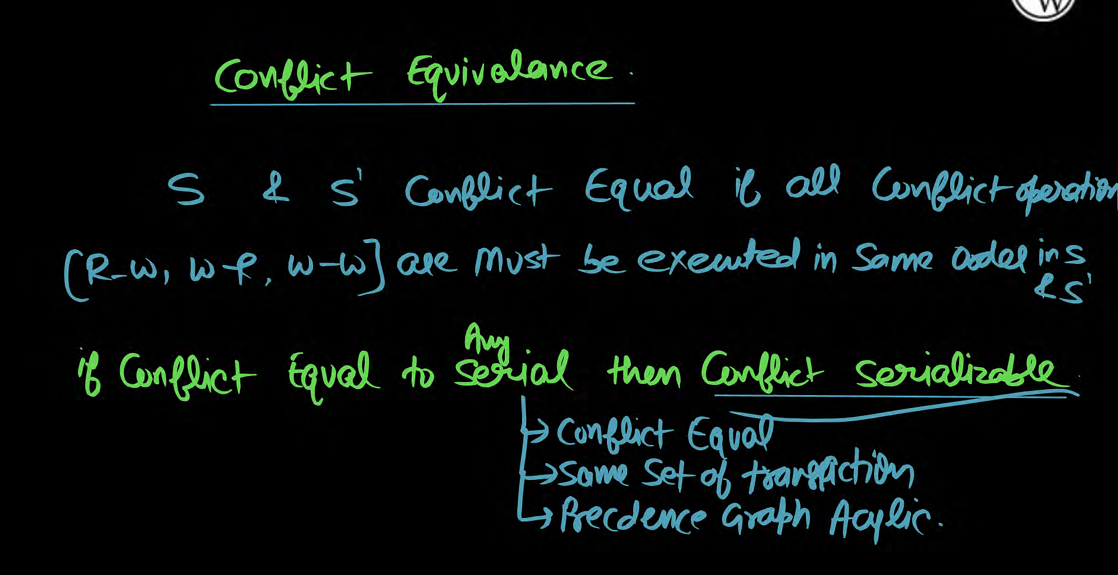 W
Conflict Equivalance.
S & S' Conflict Equal if all Conflict operation
[R-W, W-R, W-W] are Must be executed in Same order in S
& S'
Any
if Conflict Equal to Serial then Conflict serializable.
→ Conflict Equal
→ Same Set of transaction
→ Precdence Graph Acylic.